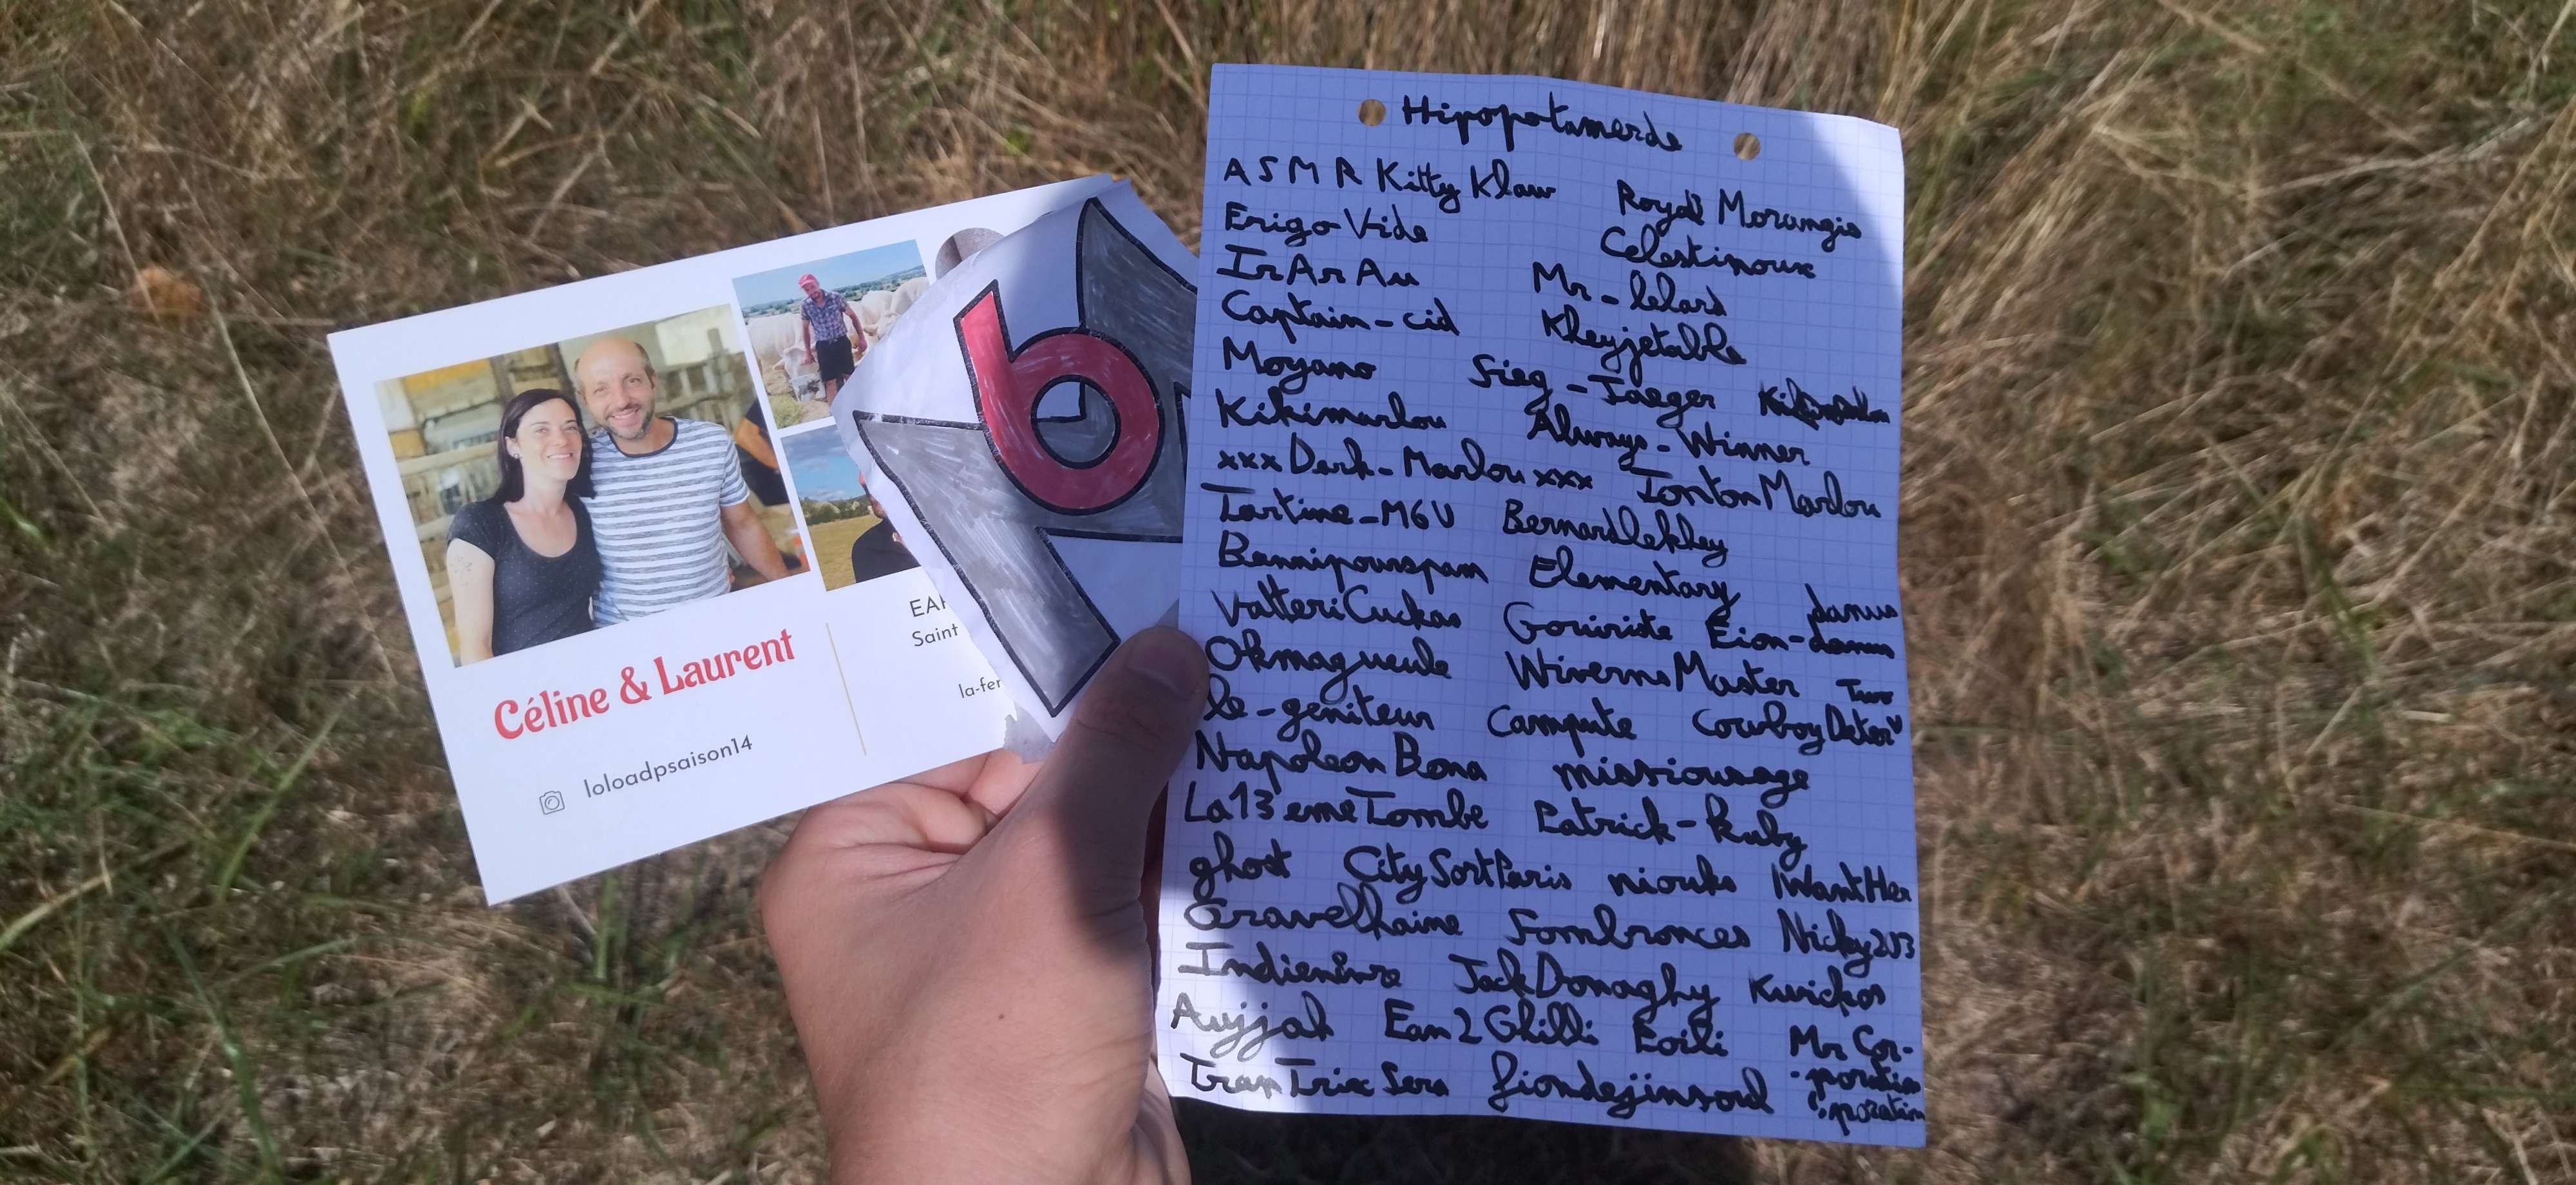 Céline & Laurent
loloadpsaison14
EAR
Saint
la-fer
Hipopotamerde
ASMR Kitty Klaw Royal Morangis
ErigoVide Celestinoux
IrArAu Mr-lelard
Captain-cid Kheyjetable
Moyano Sieg-Jaeger
Kikimarlou Always-Winner
xxxDark-Marlouxxx TontonMarlou
Tartine-M6U Bernardlekhey
Bannipourspam Elementary
ValtteriCuckas Gouiriste Eion-damus
Okmagueule WivernsMaster Two
le-geniteur Campute CowboyDeter
NapoleonBona missiousage
La13emeTombe Patrick-Ruby
ghost CitySortParis niouks IWantHer
Gravelhaine Sombronces Nicky203
JackDonaghy Kwickos
Aujjah Eam2Ghilli Eoili Mr Cor-
TranTrixSera fiondejinsord -poration